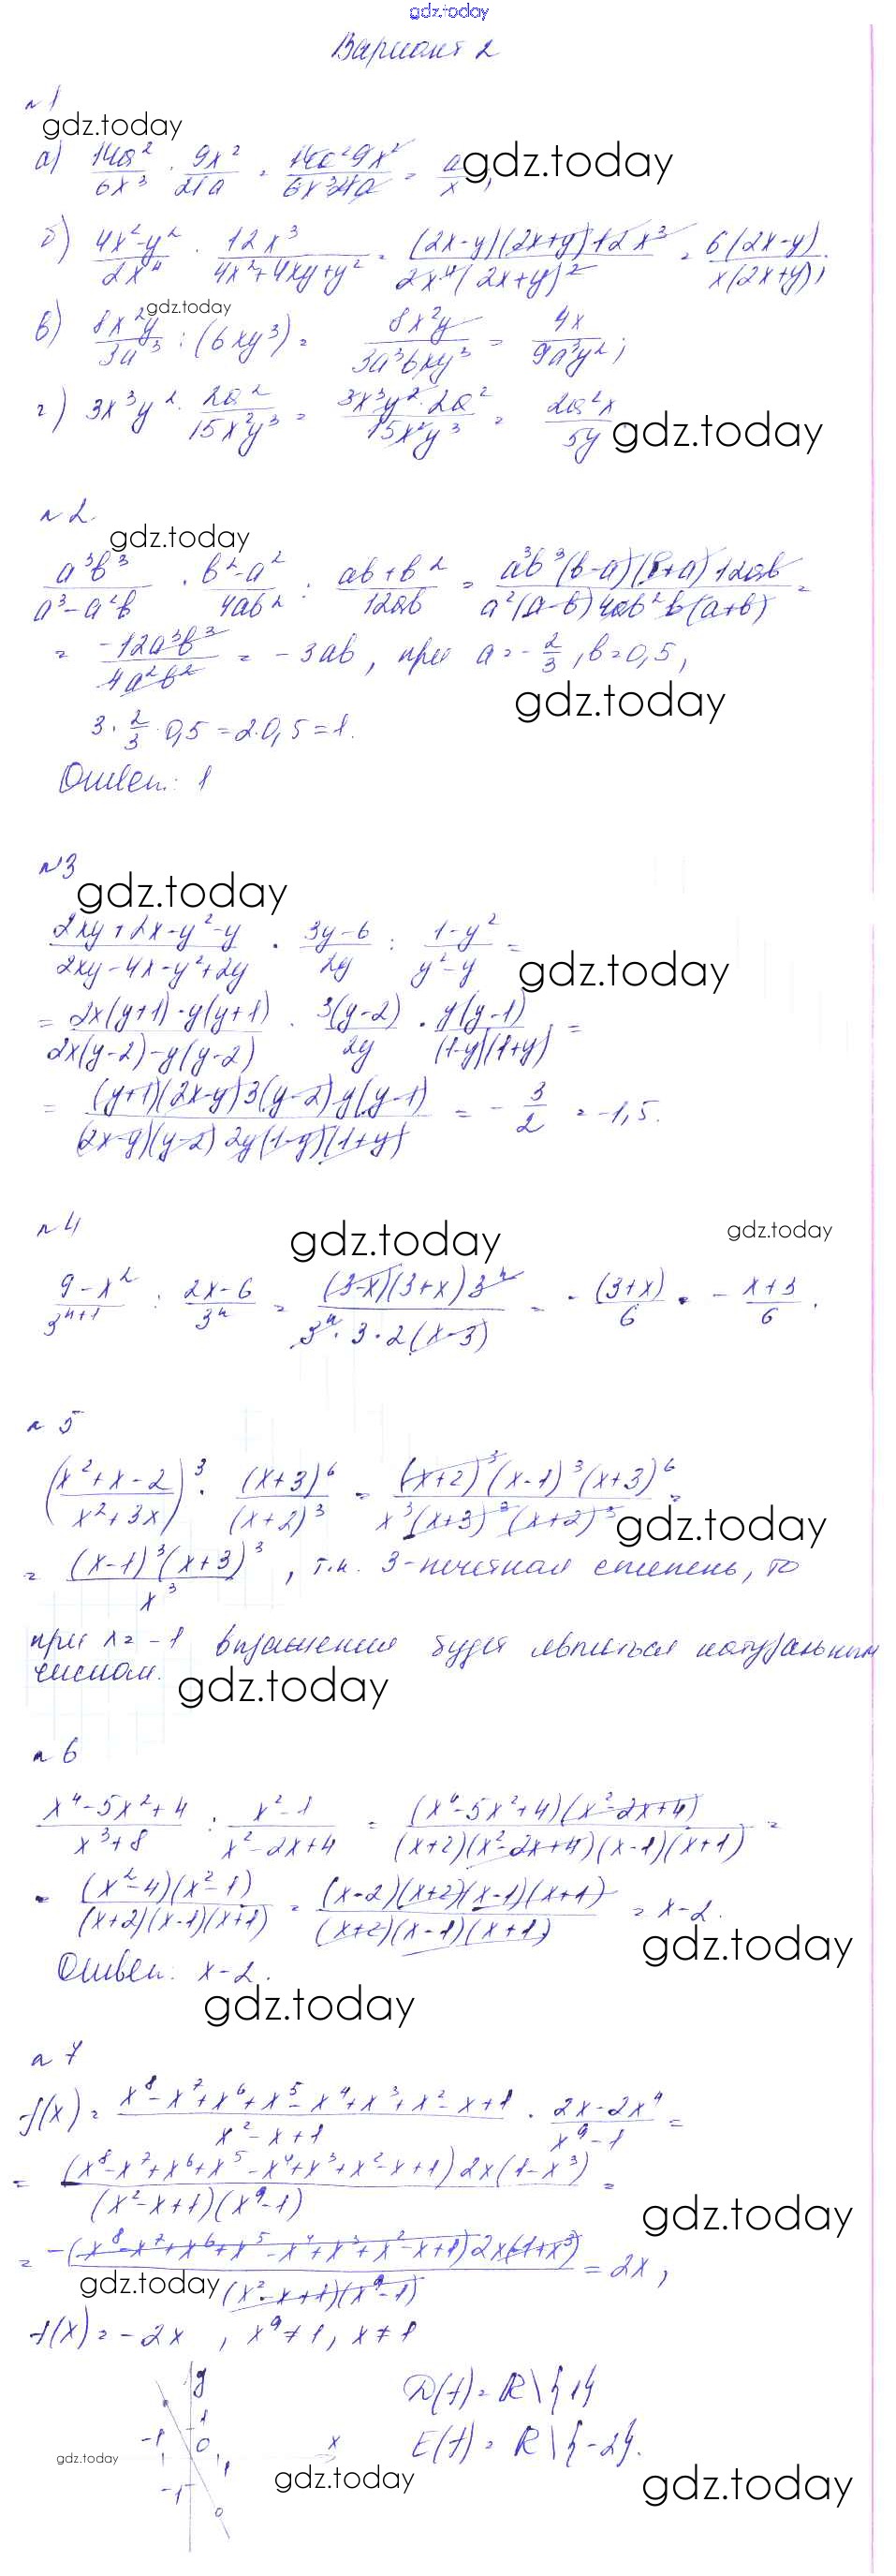 gdz.today
Вариант 2
№1
gdz.today
а) 14a²/6x³ · 9x²/21a = 14a²9x²/6x³21a = a/x; gdz.today
б) 4x²-y²/2x⁴ · 12x³/4x²+4xy+y² = (2x-y)(2x+y)12x³/2x⁴(2x+y)² = 6(2x-y)/x(2x+y);
gdz.today
в) 8x²y/3a³ : (6xy³) = 8x²y/3a³6xy³ = 4x/9a³y²;
г) 3x³y² · 2a²/15x²y³ = 3x³y²·2a²/15x²y³ = 2a²x/5y gdz.today
№2.
gdz.today
a³b³/a³-a²b · b²-a²/4ab² : ab+b²/12ab = a³b³(b-a)(b+a)12ab/a²(a-b)4ab²b(a+b) =
= -12a³b³/4a²b² = -3ab, при a=-2/3, b=0,5,
gdz.today
3·2/3·0,5=2·0,5=1.
Ответ: 1
№3
gdz.today
2xy+2x-y²-y/2xy-4x-y²+2y · 3y-6/2y : 1-y²/y²-y = gdz.today
= 2x(y+1)-y(y+1)/2x(y-2)-y(y-2) · 3(y-2)/2y · y(y-1)/(1-y)(1+y) =
= (y+1)(2x-y)3(y-2)y(y-1)/(2x-y)(y-2)2y(1-y)(1+y) = -3/2 = -1,5.
№4
gdz.today
gdz.today
9-x²/3ⁿ⁺¹ : 2x-6/3ⁿ = (3-x)(3+x)3ⁿ/3ⁿ·3·2(x-3) = -(3+x)/6 = -x+3/6.
№5
(x²+x-2/x²+3x)³ · (x+3)⁶/(x+2)³ = (x+2)³(x-1)³(x+3)⁶/x³(x+3)³(x+2)³ = gdz.today
= (x-1)³(x+3)³/x³, т.к. 3-нечётная степень, то
при x=-1 выражение будет являться натуральным
числом. gdz.today
№6
x⁴-5x²+4/x³+8 : x²-1/x²-2x+4 = (x⁴-5x²+4)(x²-2x+4)/(x+2)(x²-2x+4)(x-1)(x+1) =
= (x²-4)(x²-1)/(x+2)(x-1)(x+1) = (x-2)(x+2)(x-1)(x+1)/(x+2)(x-1)(x+1) = x-2.
gdz.today
Ответ: x-2.
gdz.today
№7
f(x) = x⁸-x⁷+x⁶+x⁵-x⁴+x³+x²-x+1/x²-x+1 · 2x-2x⁴/x⁹-1 =
= (x⁸-x⁷+x⁶+x⁵-x⁴+x³+x²-x+1)2x(1-x³)/(x²-x+1)(x⁹-1) =
gdz.today
= -(x⁸-x⁷+x⁶+x⁵-x⁴+x³+x²-x+1)2x(-1+x³)/(x²-x+1)(x⁹-1) = 2x,
gdz.today
f(x)=-2x, x⁹≠1, x≠1
y
1
-1 0 1 x
-1
D(f)=R\{1}
E(f)=R\{-2}.
gdz.today
gdz.today
gdz.today